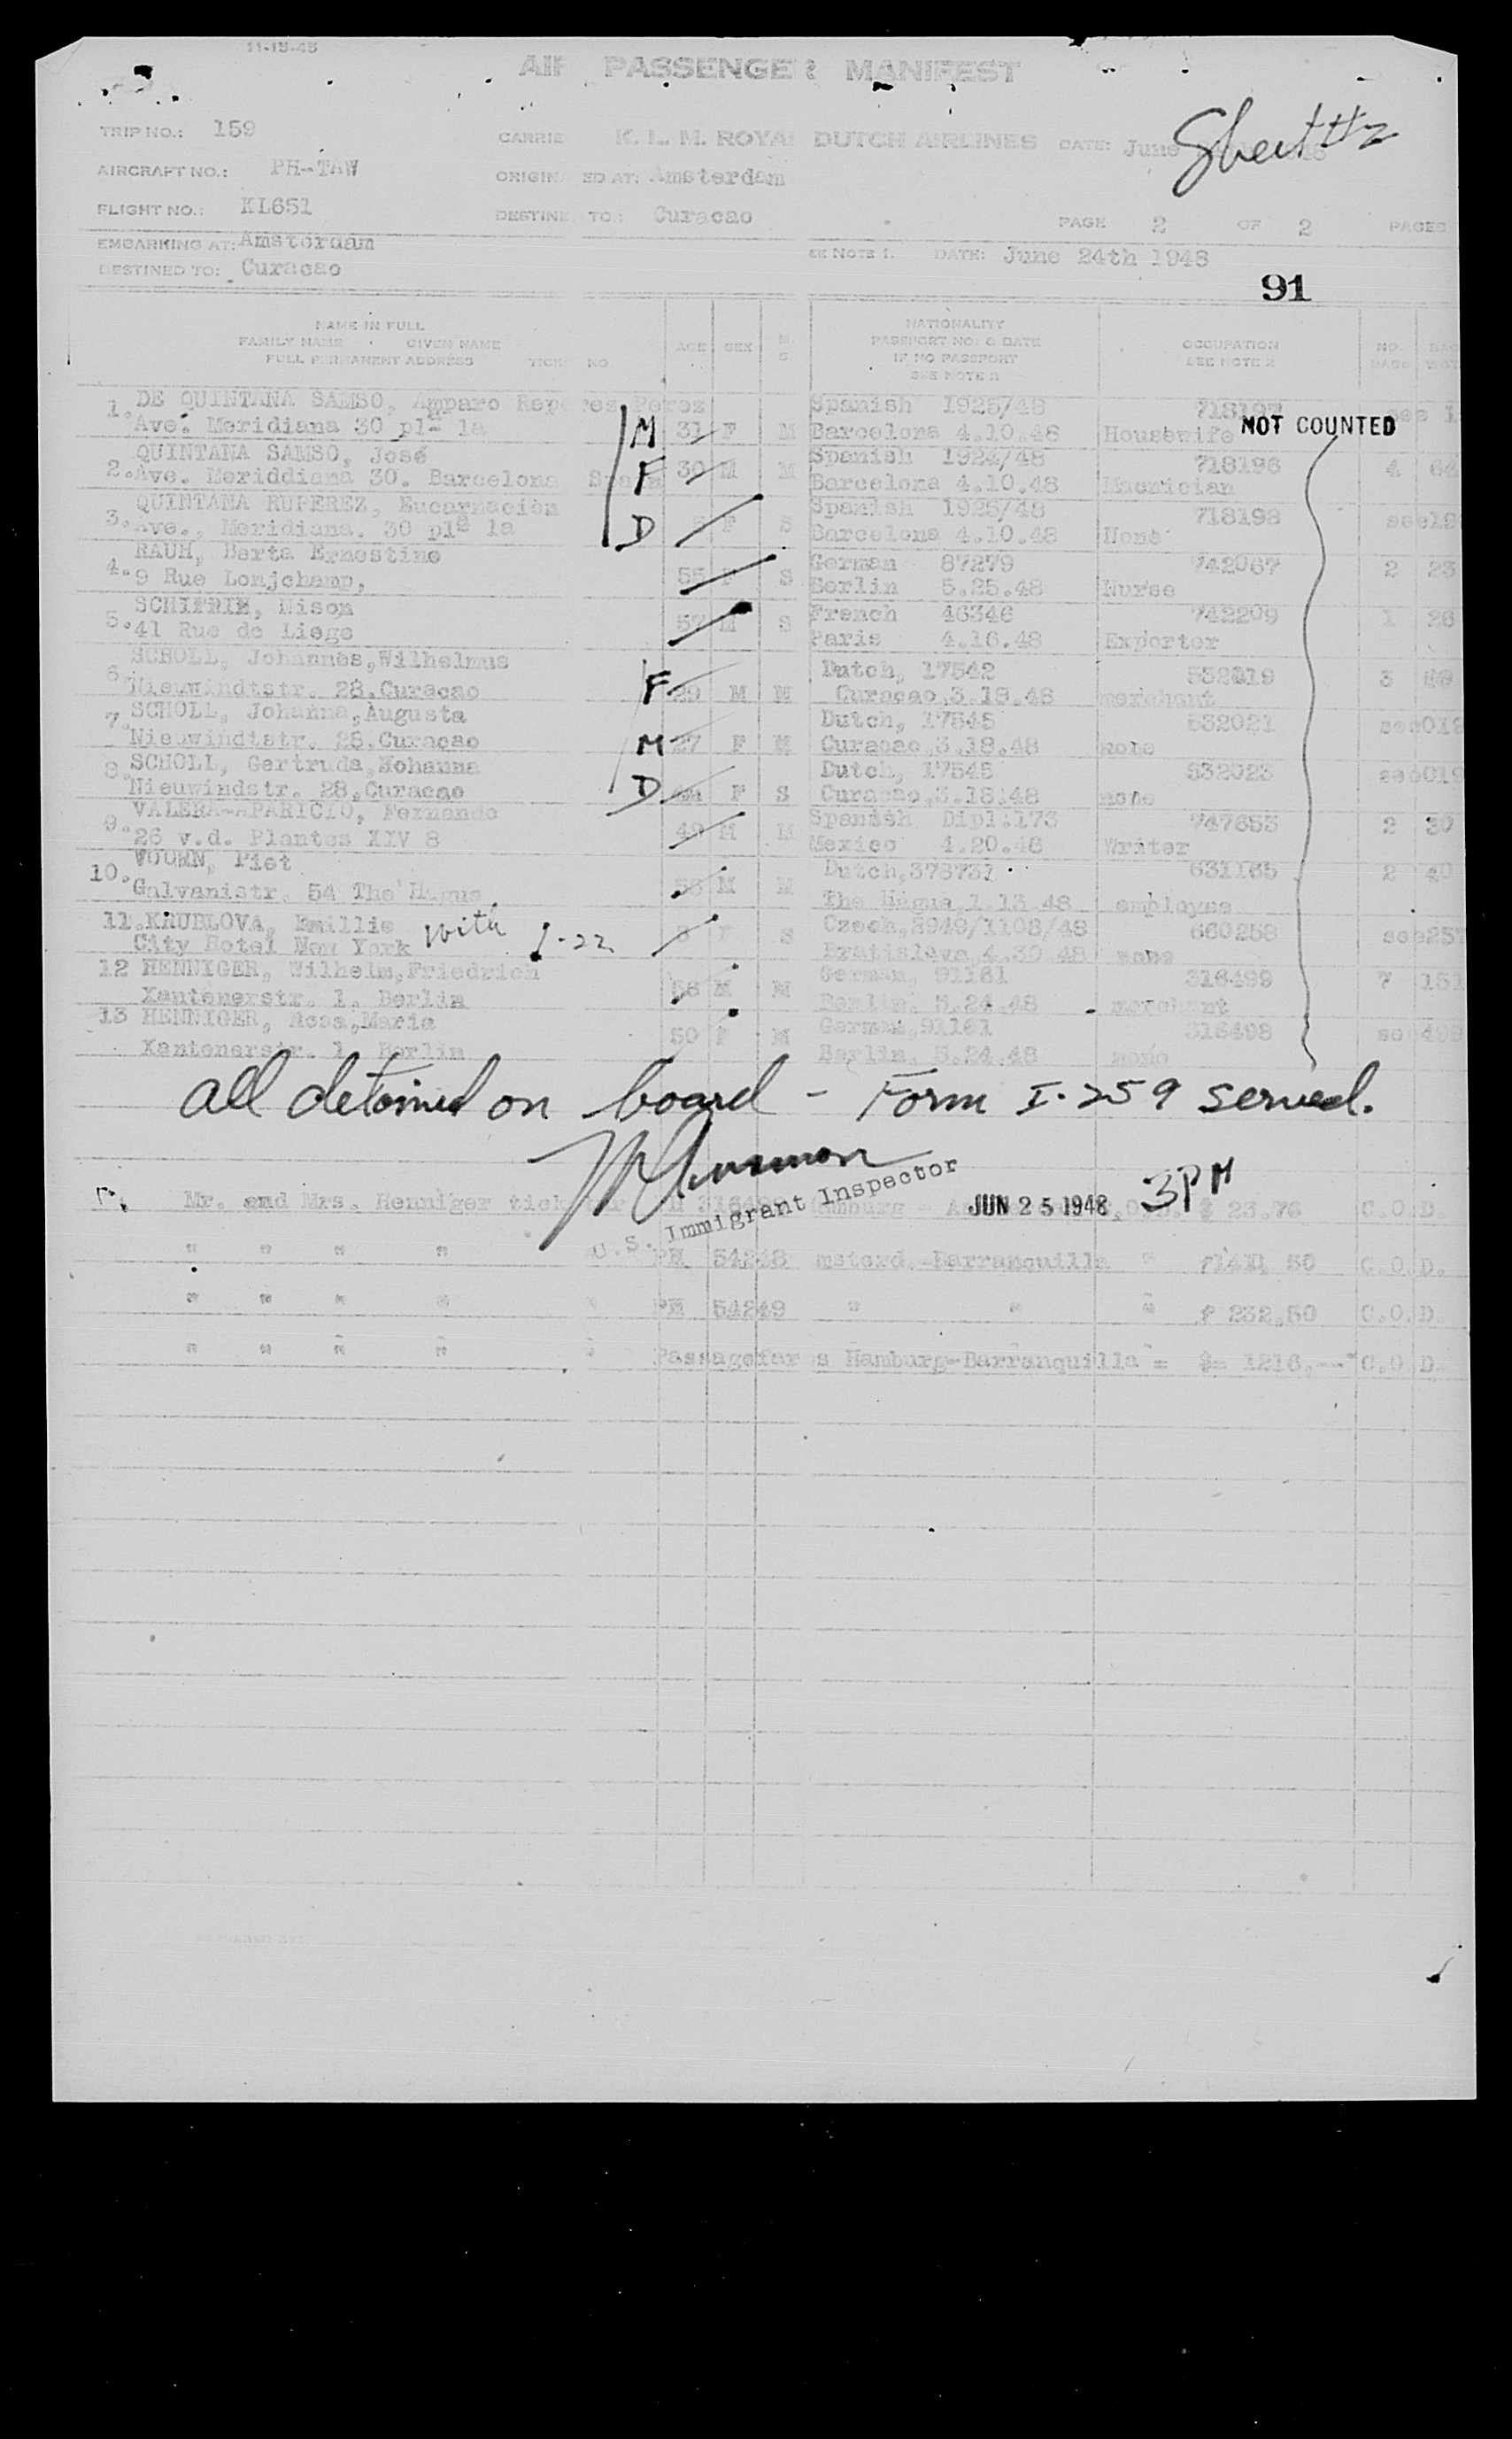 11-15-45
AIR PASSENGER MANIFEST
Sheet #2
TRIP NO.: 159 CARRIE K. L. M. ROYAL DUTCH AIRLINES DATE: June
AIRCRAFT NO.: PH-TAW ORIGIN ED AT: Amsterdam
FLIGHT NO.: KL651 DESTINE TO: Curacao PAGE 2 OF 2 PAGES
EMBARKING AT: Amsterdam
DESTINED TO: Curacao SEE NOTE 1. DATE: June 24th 1948
91
NAME IN FULL
FAMILY NAME GIVEN NAME
FULL PERMANENT ADDRESS TICK NO AGE SEX M S
NATIONALITY
PASSPORT NO. & DATE
IF NO PASSPORT
SEE NOTE
OCCUPATION
SEE NOTE 2
NO. BAGS
1. DE QUINTANA SAMSO, Amparo Perez Spanish 1925/48 718197
Ave. Meridiana 30 pla 1a M 31 F M Barcelona 4.10.48 Housewife NOT COUNTED see
QUINTANA SAMSO, José Spanish 1924/48 718196
2. Ave. Meriddiana 30. Barcelona F 30 M M Barcelona 4.10.48 4 64
QUINTANA RUPEREZ, Encarnación Spanish 1925/48 718198
3. Ave., Meridiana. 30 pla 1a D F S Barcelona 4.10.48 None see
RAUH, Berta Ernestine German 87279 742067
4. 9 Rue Lonjchamp, 55 F S Berlin 5.25.48 Nurse 2 23
SCHIFRIN, Nison French 46346 742209
5. 41 Rue de Liege 57 M S Paris 4.16.48 Exporter 1 26
6. SCHOLL, Johannes, Wilhelmus Dutch, 17542 532019
Nieuwindtstr. 28, Curacao F 29 M M Curacao, 3.18.48 merchant 3
7. SCHOLL, Johanna, Augusta Dutch, 17545 532021
Nieuwindtstr. 28, Curacao M 27 F M Curacao, 3.18.48 none see
8. SCHOLL, Gertruda, Johanna Dutch, 17545 532023
Nieuwindstr. 28, Curacao D F S Curacao, 3.18.48 none see
VALERA-APARICIO, Fernando Spanish Dipl: 173 747653
9. 26 v.d. Plantes XIV 8 49 M M Mexico 4.20.48 Writer 2 30
10. Piet Dutch, 378731 631165
Galvanistr. 54 The Hague M M The Hague, 1.13.48 employee 2 40
11. KRUBLOVA, Emillie with 1-22 F S Czech, 1108/48 660258
City Hotel New York Bratislava 4.30.48 none see
12 HENNIGER, Wilhelm, Friedrich German, 91161 316499
Xantenerstr. 1. Berlin 56 M M Berlin, 5.24.48 merchant 7 151
13 HENNIGER, Rosa, Maria German, 91161 316498
Xantenerstr. 1 Berlin 50 F M Berlin, 5.24.48 none see
all detained on board - Form I-259 served.
U.S. Immigrant Inspector
JUN 25 1948 3PM
Mr. and Mrs. Henniger $ 23.76 C.O.D.
" " " " PM 54248 -Barranquilla " 50 C.O.D.
" " " " " PM 54249 " " " 232.50 C.O.D.
" " " " " Hamburg-Barranquilla = $= 1216.-- C.O.D.